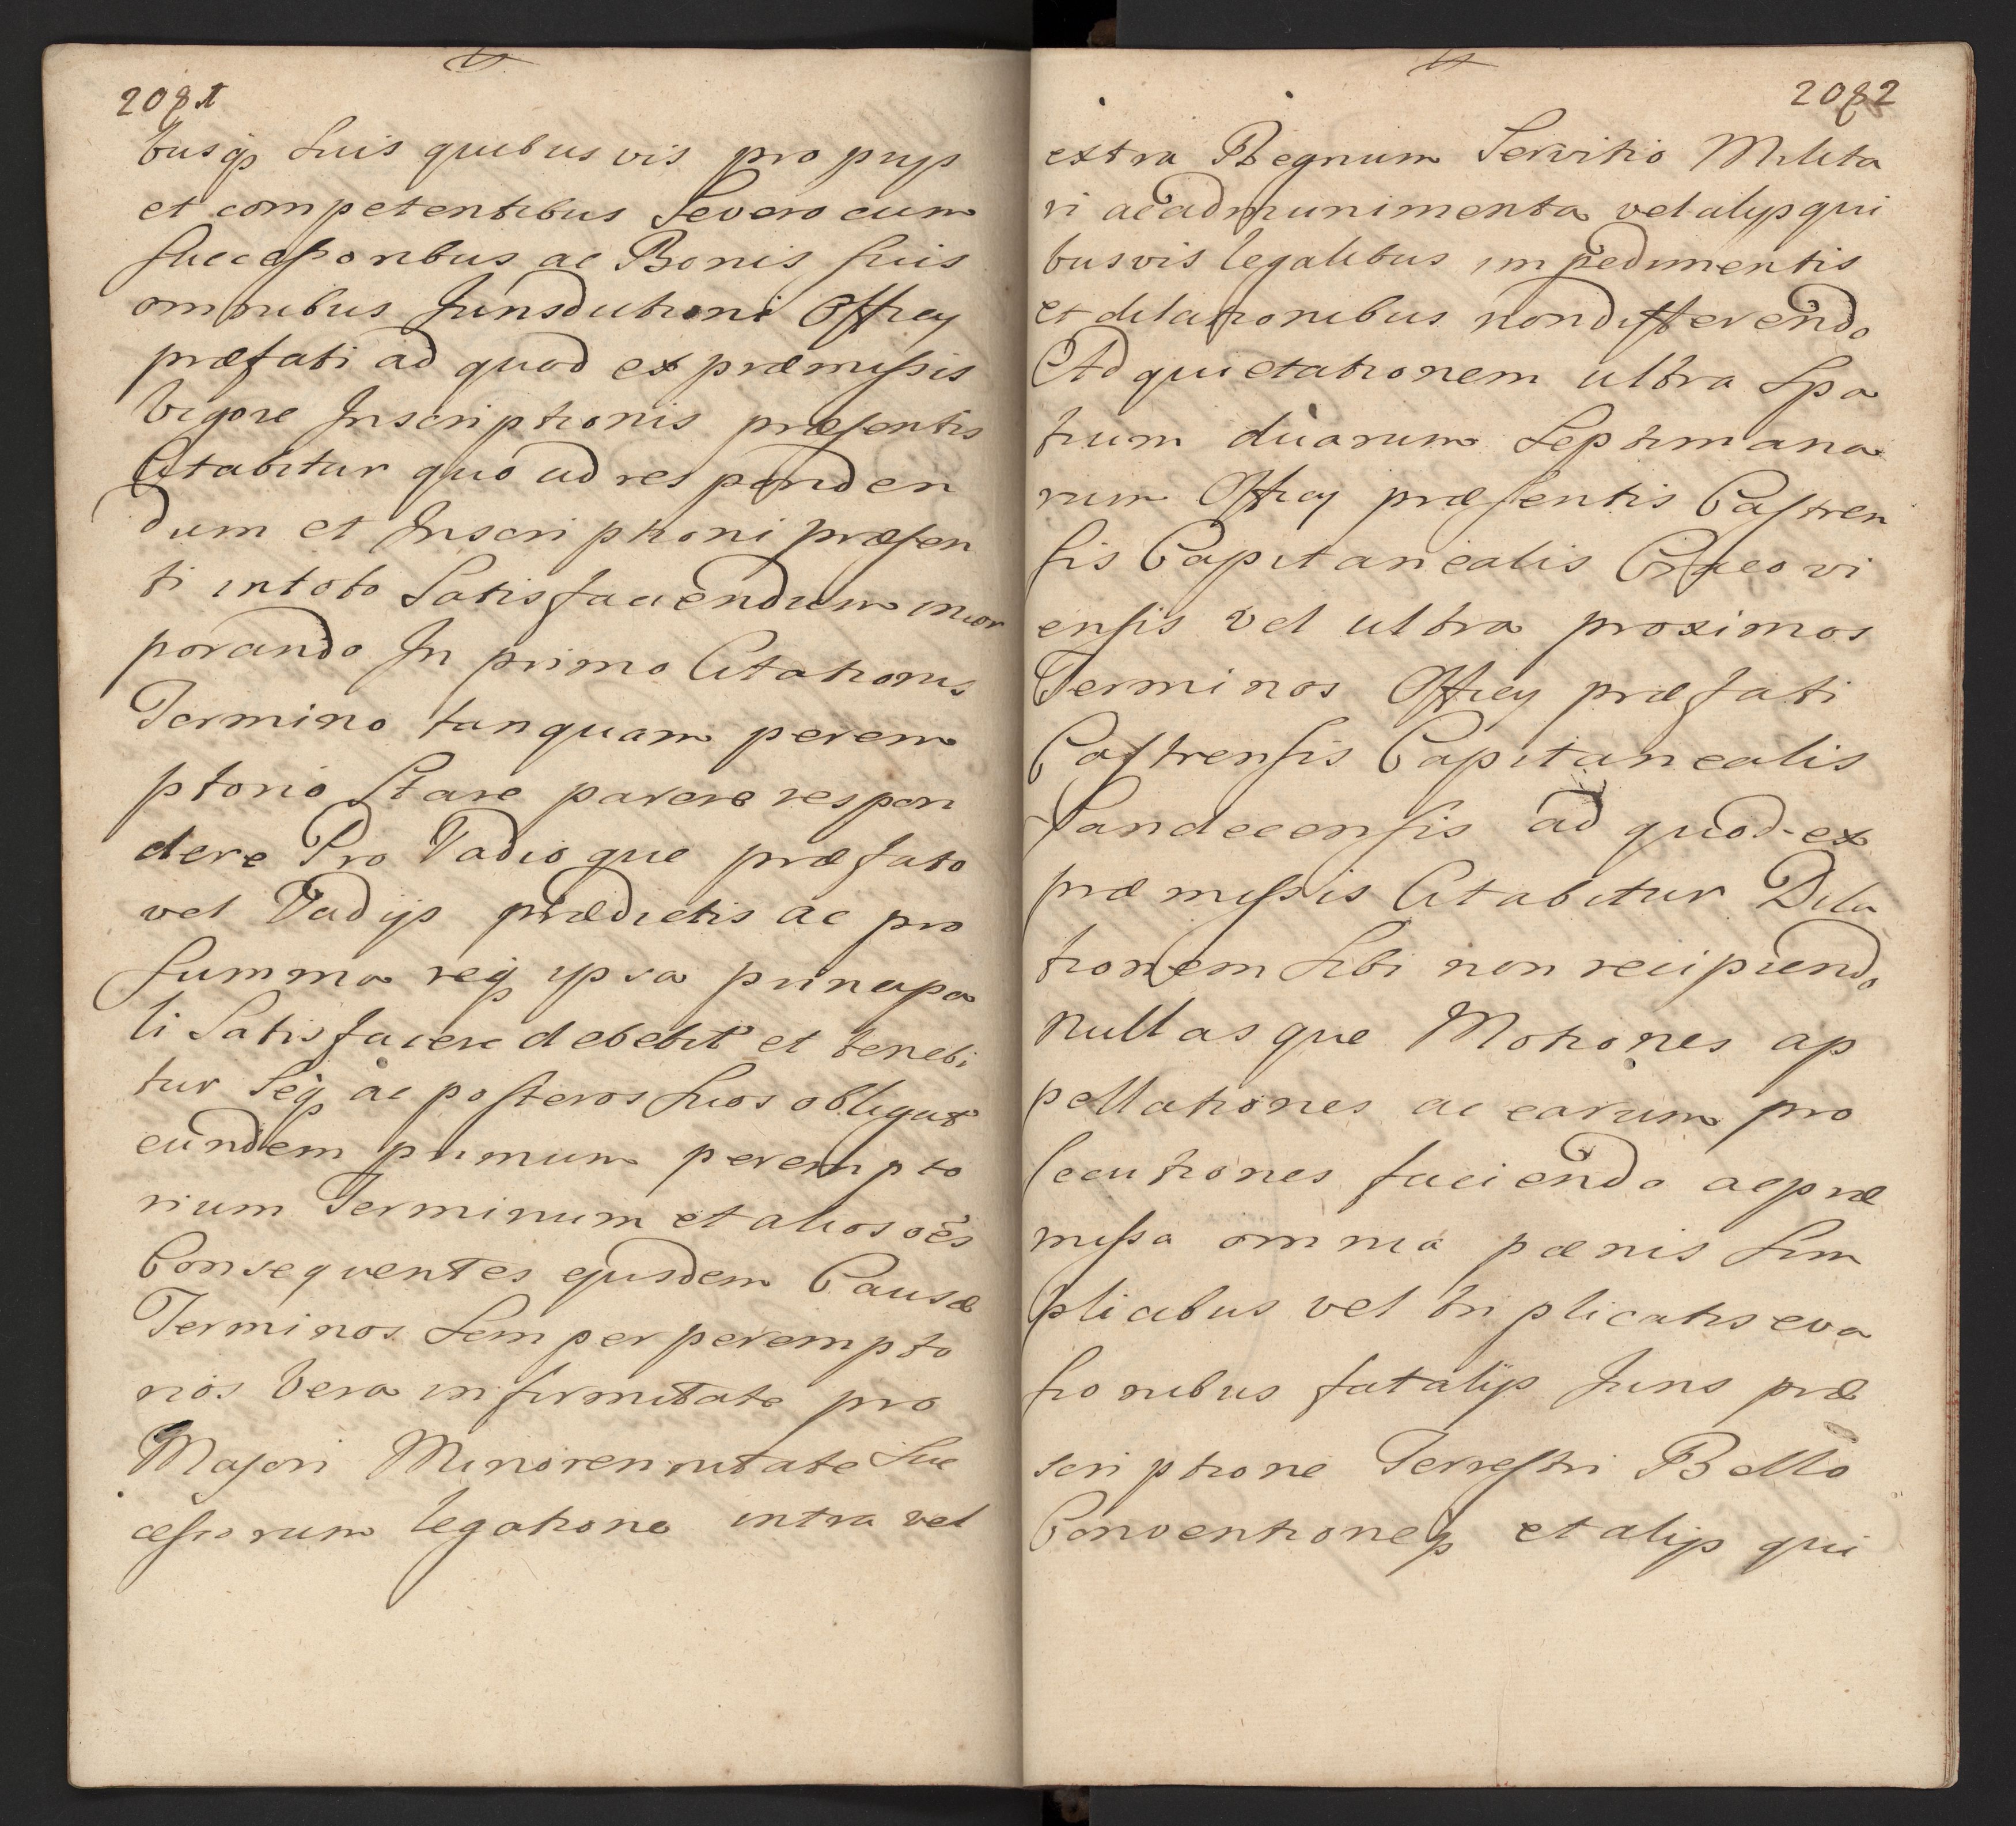 2081
busq3 Suis quibusvis proprijs
et competentibus Se vero cum
Successoribus ac Bonis suis
omnibus Jurisdictioni Officij
præfati ad quod ex præmissis
vigore Inscriptionis præsentis
Citabitur quo ad responden
dum et Inscriptioni præsen
ti in toto Satisfaciendum incor
porando In primo Citationis
Termino tanquam perem
ptorio Stare parere respon
dere Pro Vadioque præfato
vel Vadijs prædictis ac pro
Summa reiq3 ipsa principa
li Satisfacere debebit et tenebi
tur Seq3 ac posteros Suos obligat
eundem primum perempto
rium Terminum et alios oes
Consequentes ejusdem Causæ
Terminos Semper perempto
rios vera infirmitate pro
Majori Minorennitate Suc
cessorum legatione intra vel
2082
extra Regnum Servitio Milita
ri ac ad munimenta vel alijs qui
busvis legalibus impedimentis
et dilationibus non differendo
Ad quietationem ultra Spa
tium duarum Septimana
rum Officij præsentis Castren
sis Capitanealis Cracovi
ensis vel ultra proximos
Terminos Officij præfati
Castrensis Capitanealis
Sandecensis ad quod ex
præmissis Citabitur Dila
tionem Sibi non recipiendo
Nullasque Motiones ap
pellationes ac earum pro
secutiones faciendo ac præ
missa omnia pænis Sim
plicibus vel triplicatis eva
sionibus fatalijs Juris præ
scriptione Terrestri Bello
Conventioneq3 et alijs qui